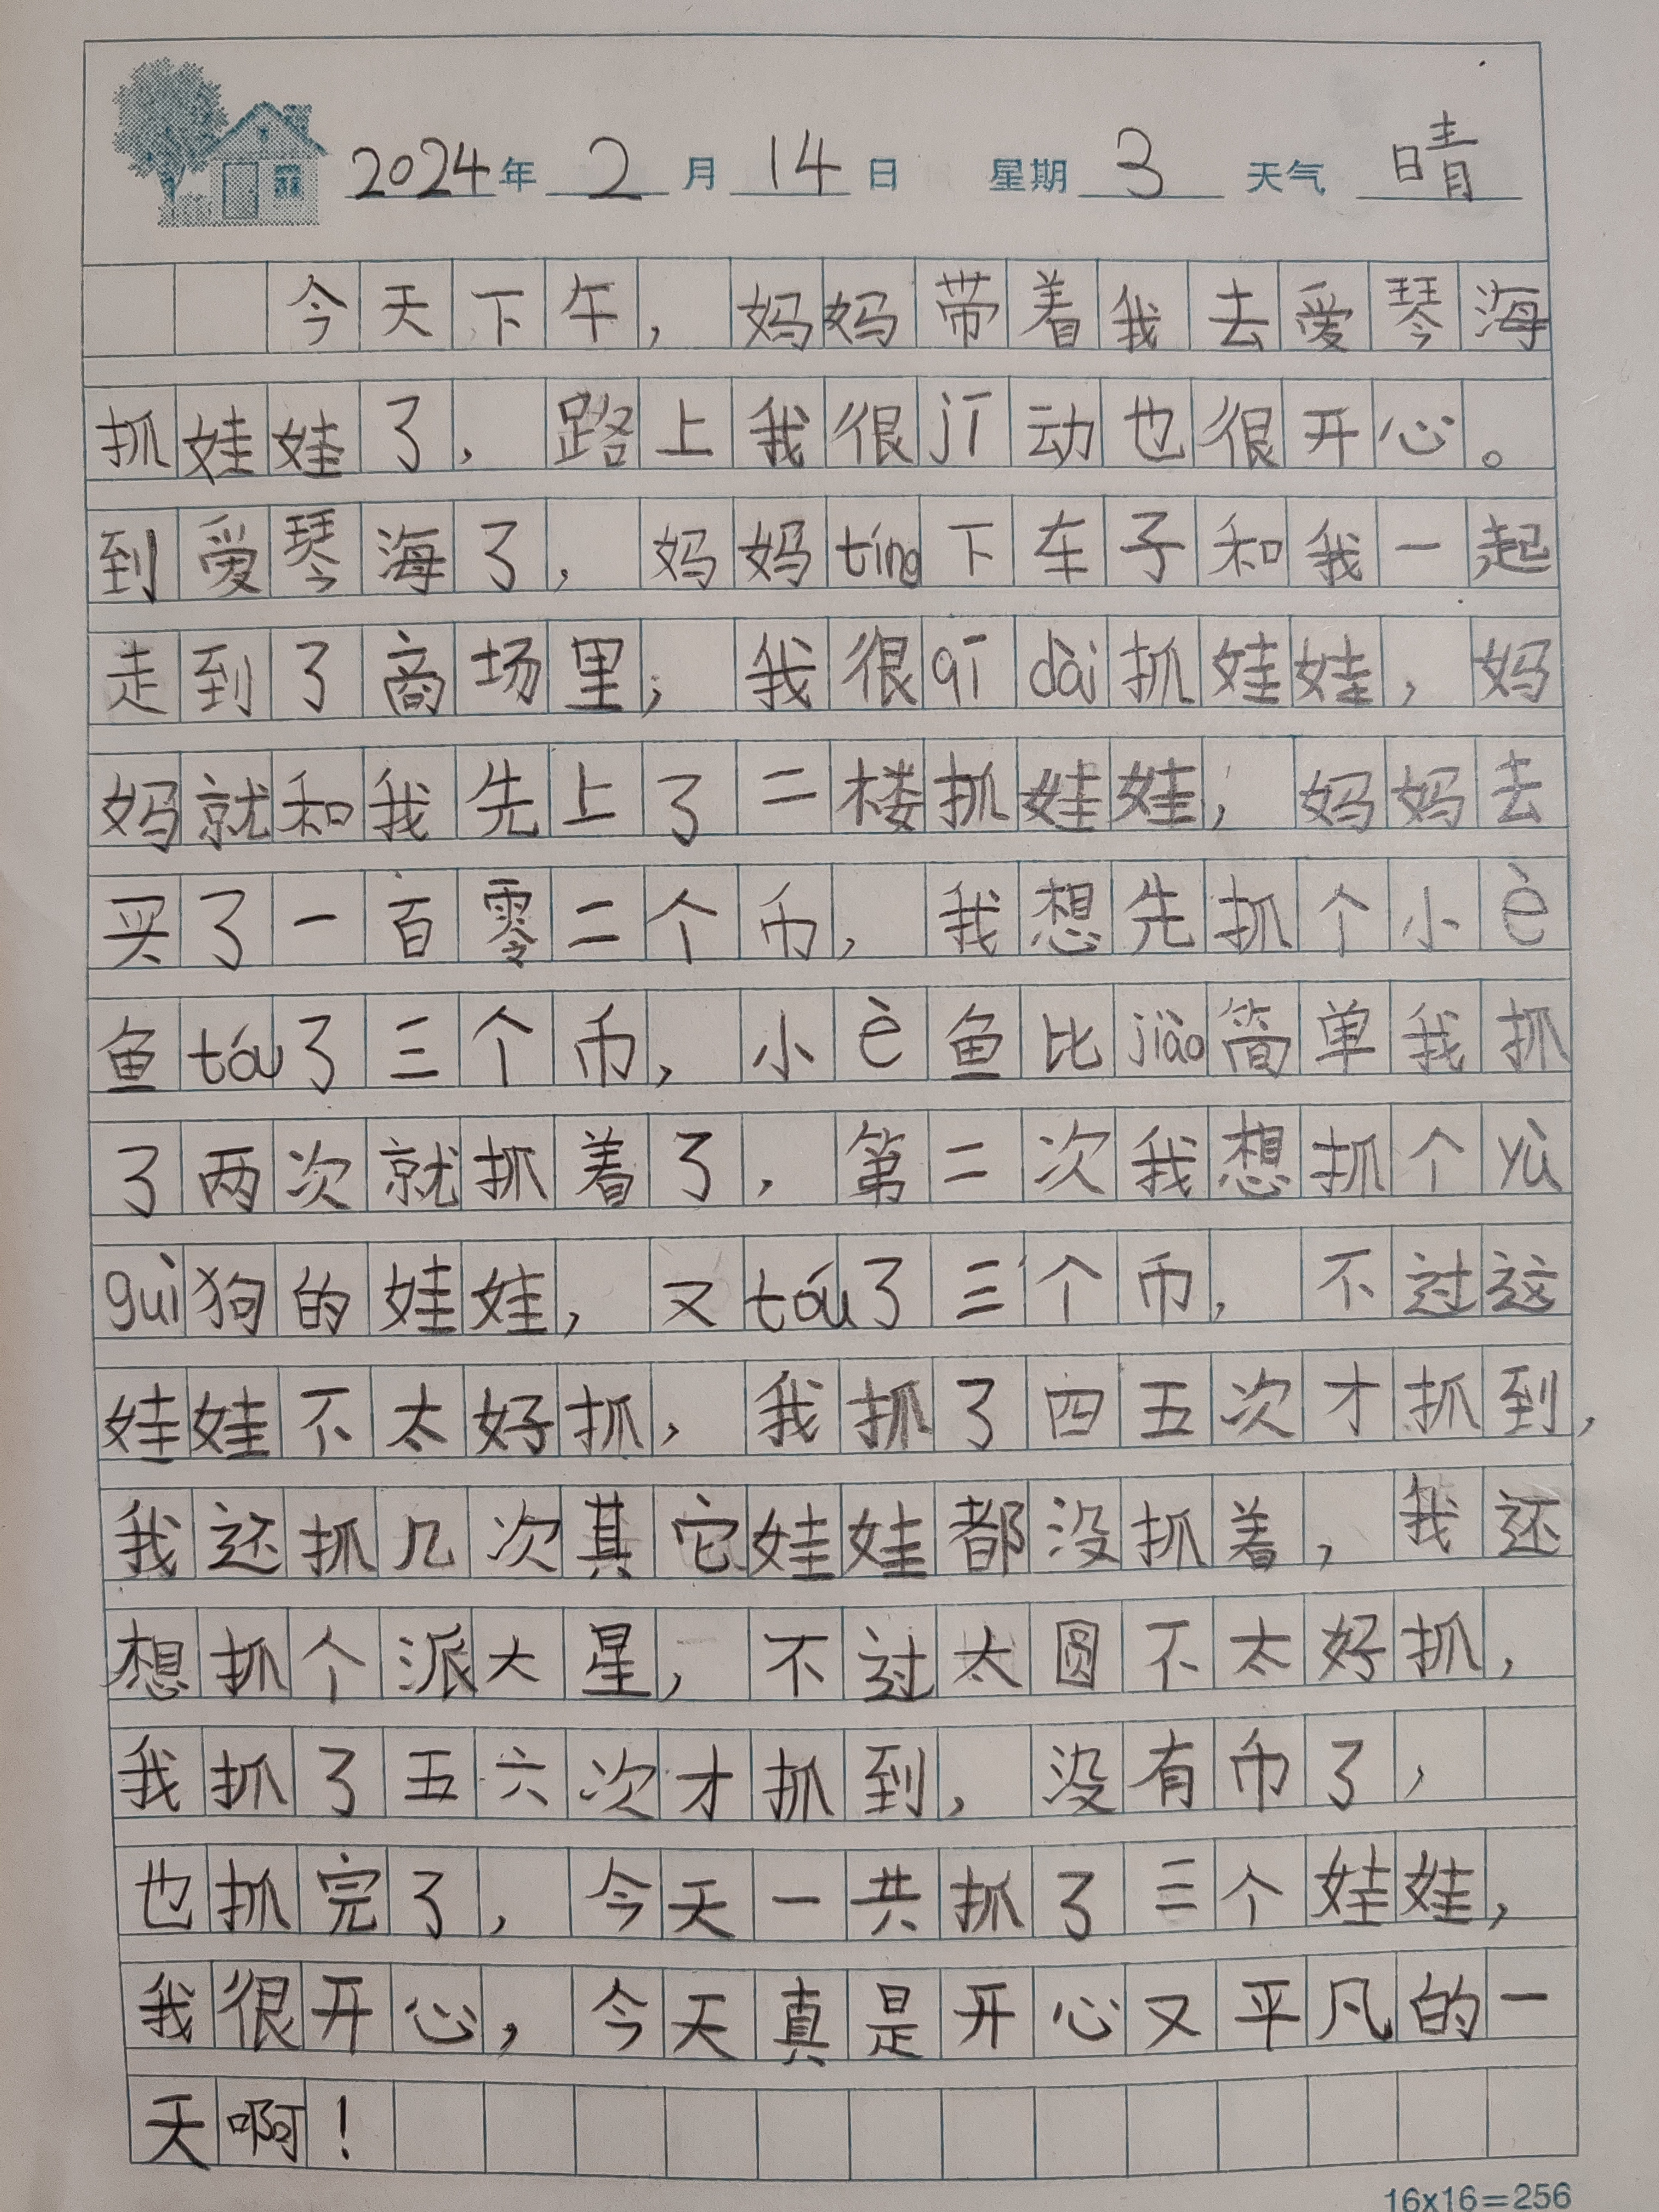 2024年 2 月 14 日 星期 3 天气 晴
今天下午，妈妈带着我去爱琴海
抓娃娃了，路上我很jī动也很开心。
到爱琴海了，妈妈tíng下车子和我一起
走到了商场里，我很qī dài抓娃娃，妈
妈就和我先上了二楼抓娃娃，妈妈去
买了一百零二个币，我想先抓个小è
鱼tóu了三个币，小è鱼比jiǎo简单我抓
了两次就抓着了，第二次我想抓个yù
guì狗的娃娃，又tóu了三个币，不过这
娃娃不太好抓，我抓了四五次才抓到，
我还抓几次其它娃娃都没抓着，我还
想抓个派大星，不过太圆不太好抓，
我抓了五六次才抓到，没有币了，
也抓完了，今天一共抓了三个娃娃，
我很开心，今天真是开心又平凡的一
天啊！
16x16=256